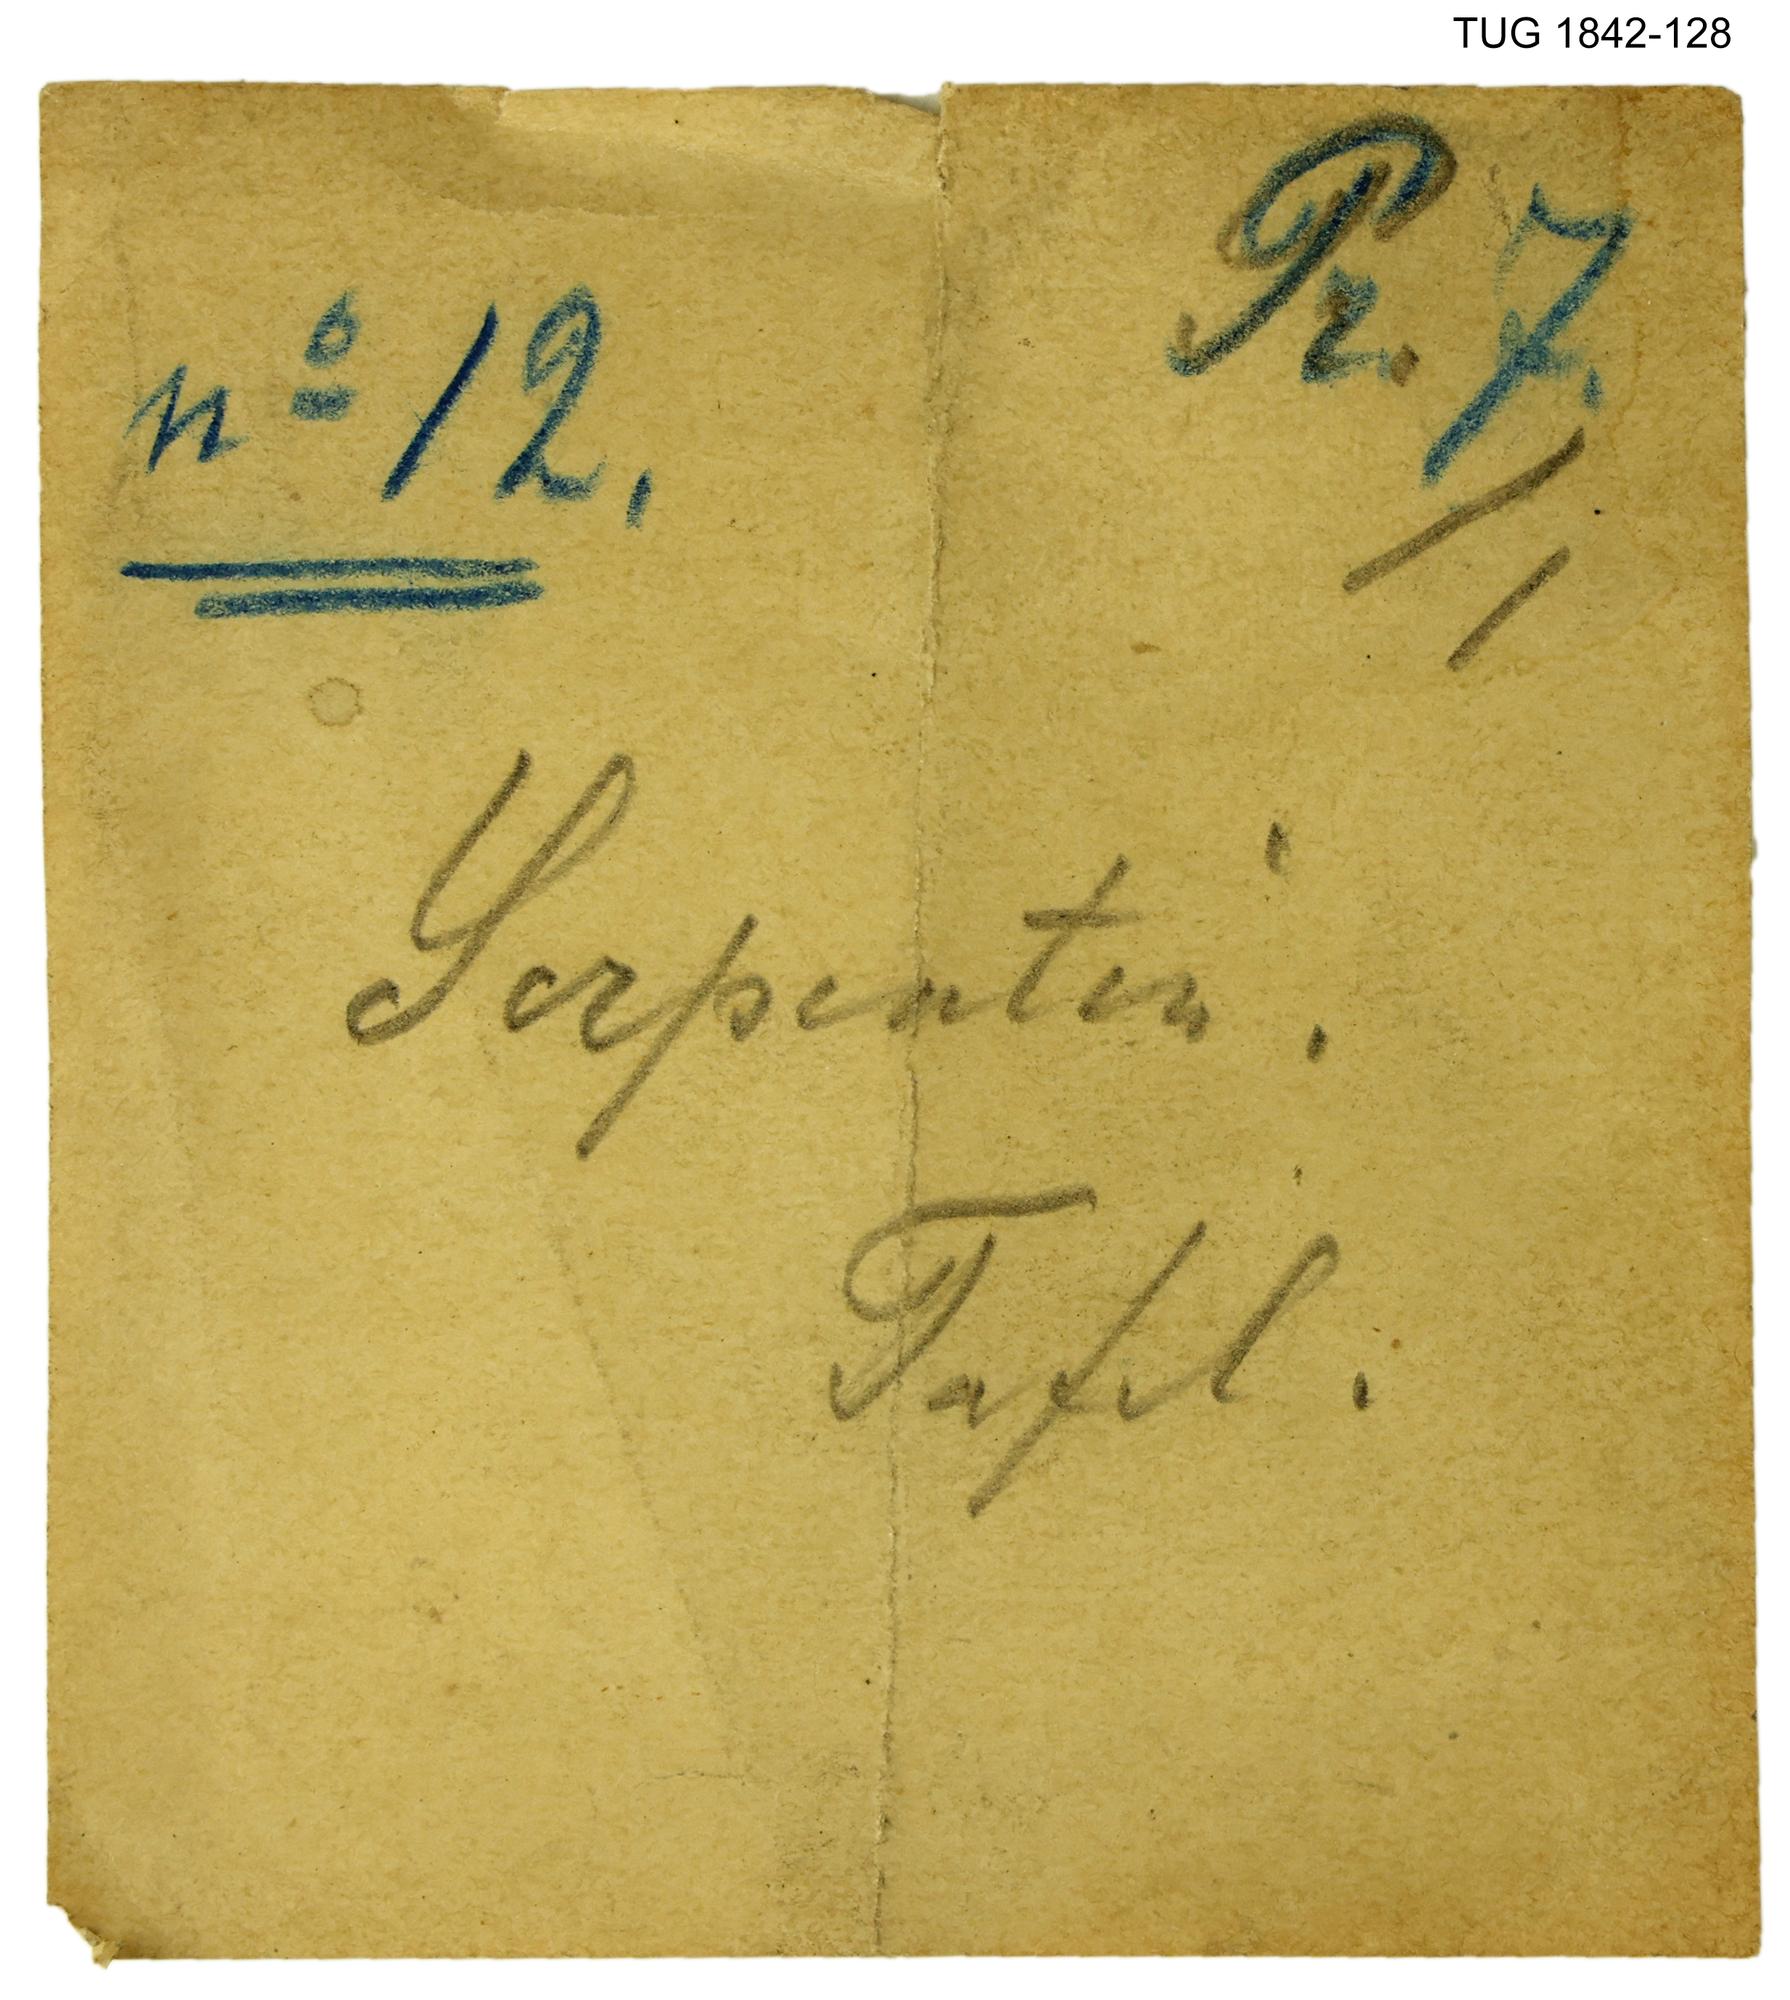 TUG 1842-128
Pr. 7.
nº 12.
1
Serpentin.
Tafel.